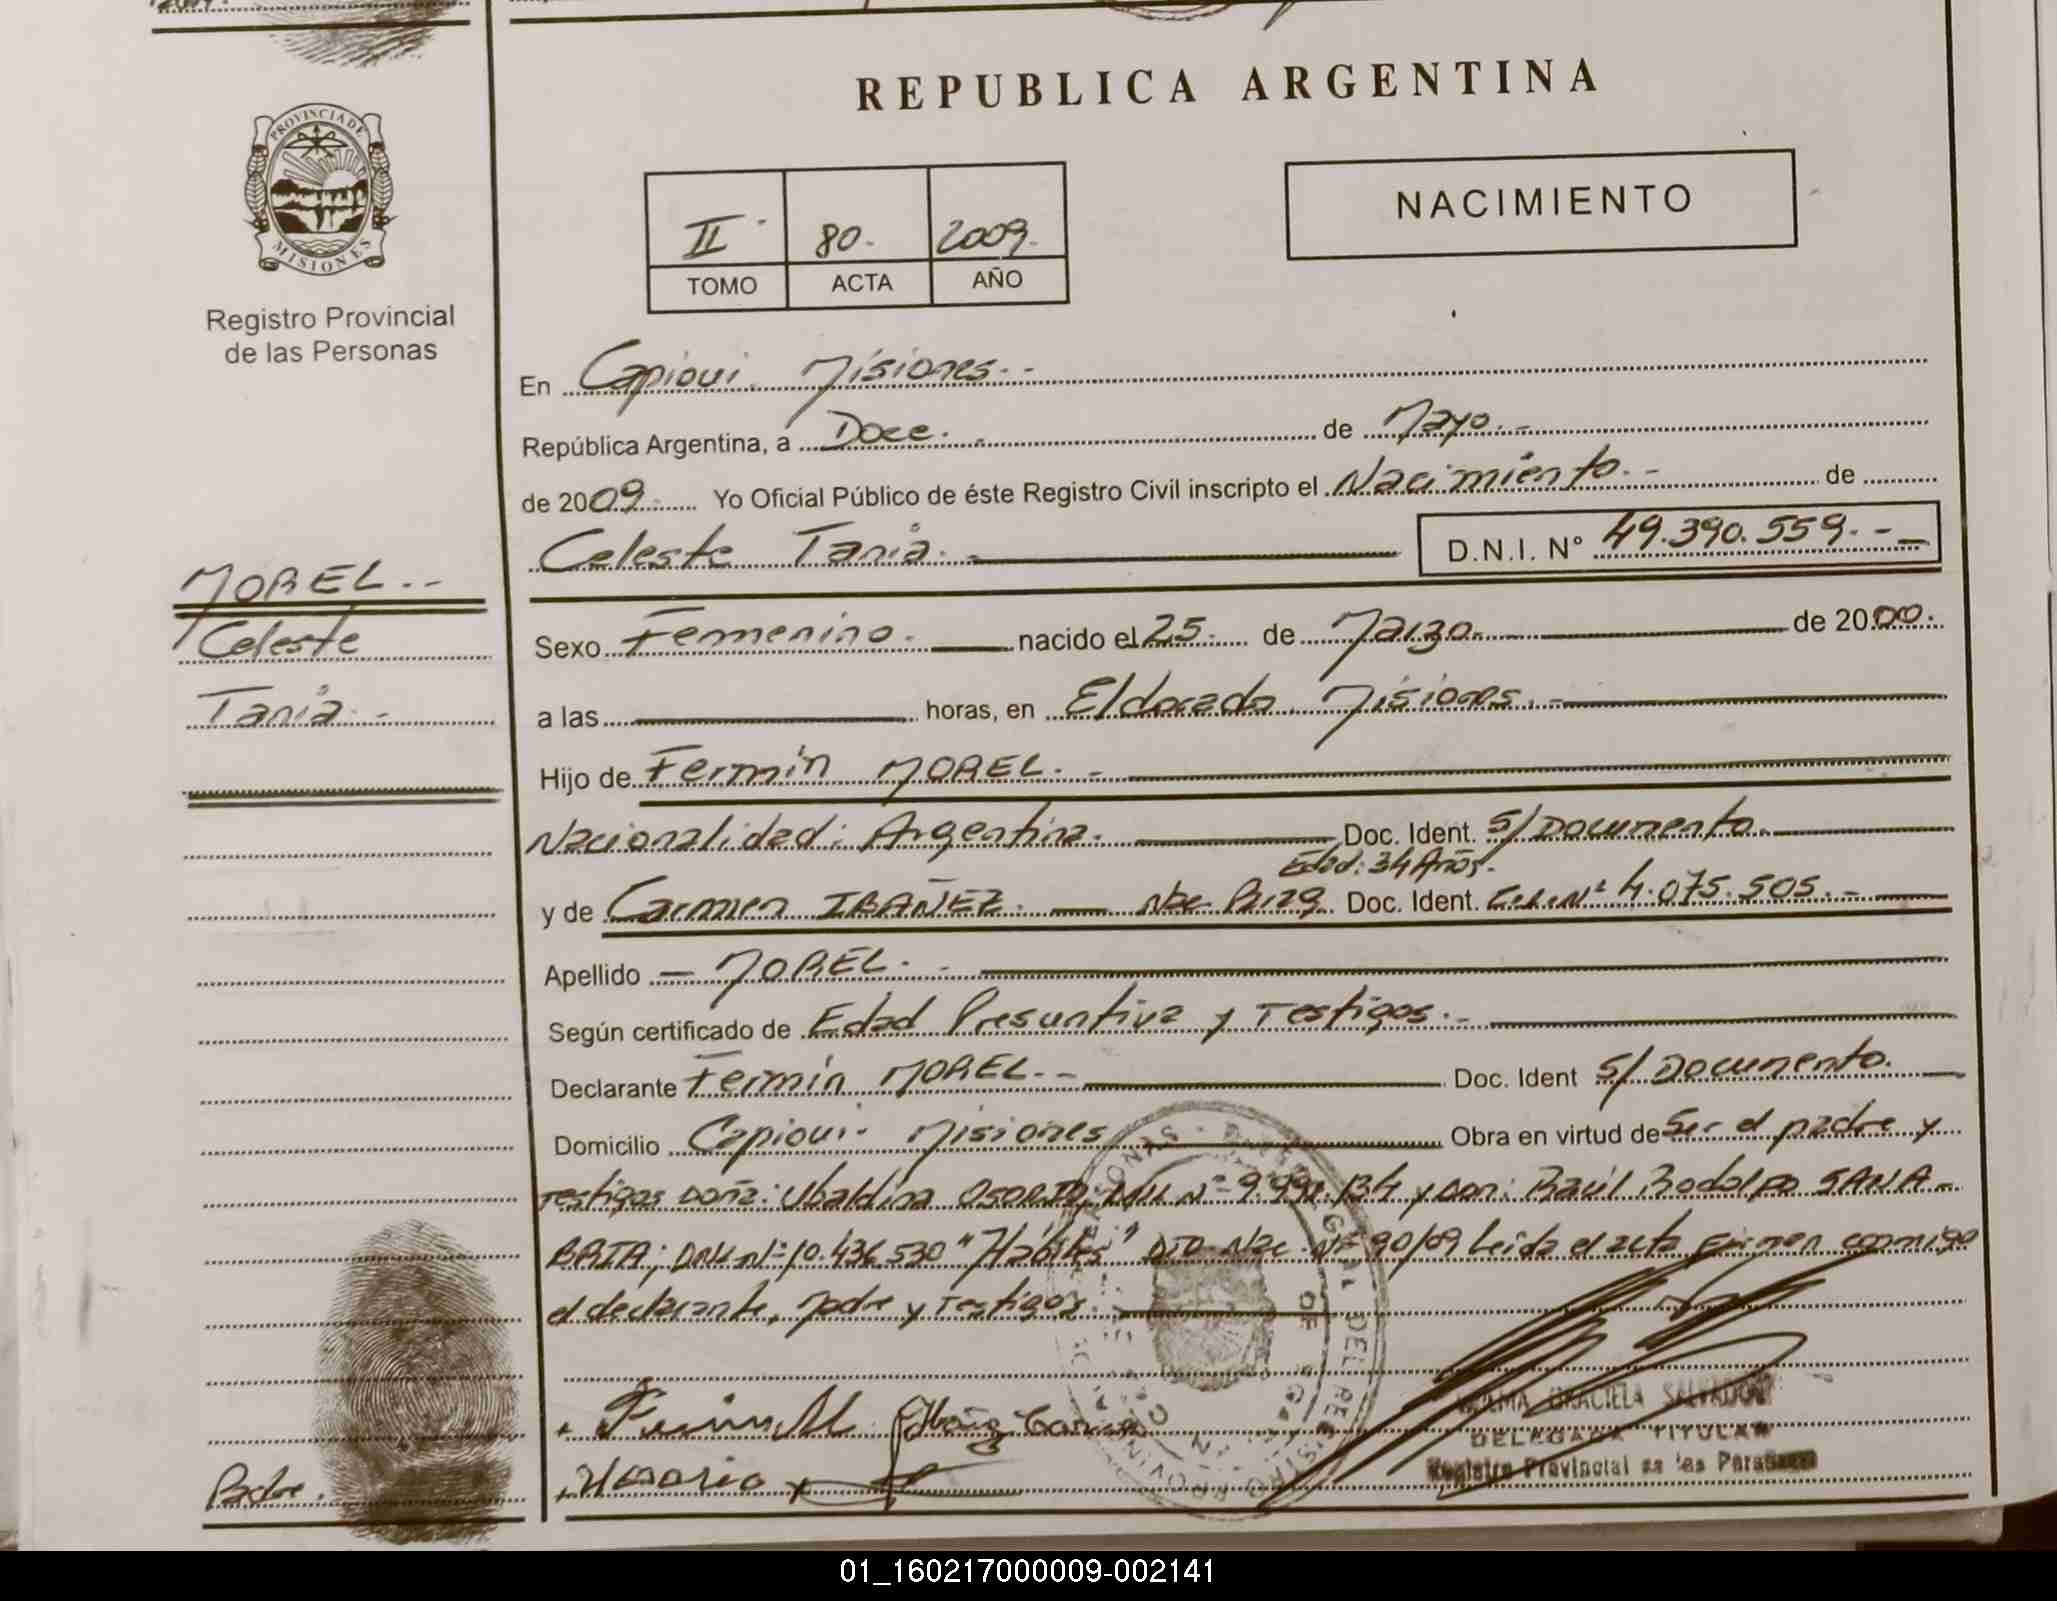 REPUBLICA ARGENTINA
PROVINCIA DE
MISIONES
Registro Provincial
de las Personas
NACIMIENTO
II - 80.- 2009.-
TOMO ACTA AÑO
En Capioui. Misiones.--
República Argentina, a Doce.- de Mayo.-
de 2009.- Yo Oficial Público de éste Registro Civil inscripto el Nacimiento.- de
Celeste Tania.- D.N.I. Nº 49.390.559.--
MOREL.--
Celeste
Tania.-
Sexo Femenino. nacido el 25.- de Marzo.- de 2000.-
a las horas, en Eldorado. Misiones.-
Hijo de Fermín MOREL.-
Nacionalidad: Argentina. Doc. Ident. S/Documento.
Edad: 34 Años.-
y de Carmen IBAÑEZ. Nac. Doc. Ident. Nº 4.075.505.-
Apellido MOREL.-
Según certificado de Edad Presuntiva y Testigos.-
Declarante Fermín MOREL.-- Doc. Ident S/Documento.
Domicilio Capioui.- Misiones Obra en virtud de Ser el padre y
testigos Doña: Ubaldina OSORIO, DNI Nº 134 y Don: Raúl Rodolfo SANA-
BRIA; DNI nº 10.436.530 "Hábiles" Nac. Nº 90/09 Leída el acta Firman conmigo
el declarante, Madre y Testigos.
Ibañez Carmen
GRACIELA SALVADORI
DELEGADA TITULAR
Registro Provincial de las Personas
Padre.
01_160217000009-002141